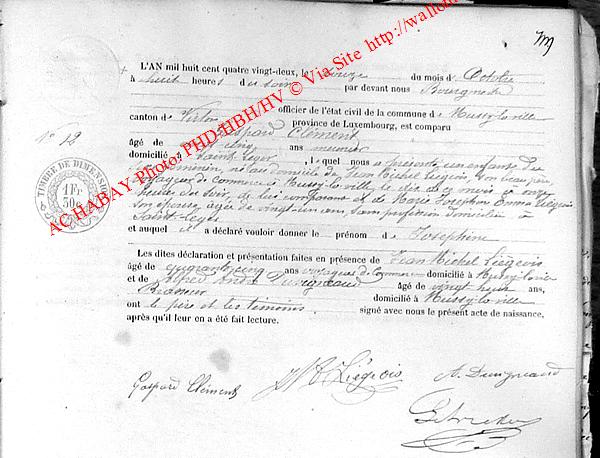 L'AN mil huit cent quatre vingt-deux, le douze du mois d'Octobre
à huit heures du soir par devant nous Bourgmestre
officier de l'état civil de la commune de Mussy-la-ville
canton de Virton province de Luxembourg, est comparu
Gaspard Clément
âgé de ans meunier
domicilié à Saint-Leger, lequel nous a présenté un enfant du
sexe féminin, né au domicile de Jean Michel Liégeois son beau père
voyageur de commerce à Mussy-la-ville, le dix de ce mois à onze
heures du soir, de lui comparant et de Marie Josephine Emma Liégeois
son épouse, agée de vingt-un ans, sans profession domiciliée à
Saint-Leger
et auquel il a déclaré vouloir donner le prénom de Josephine
Les dites déclaration et présentation faites en présence de Jean Michel Liégeois
âgé de quarante cinq ans voyageur de commerce domicilié à Mussy-la-ville
et de Alfred André âgé de vingt huit ans,
Brasseur domicilié à Mussy-la-ville
ont le père et les témoins signé avec nous le présent acte de naissance,
après qu'il leur en a été fait lecture.
N° 12
TIMBRE DE DIMENSION
1 Fr
50c
AC HABAY Photo: PHD-HBH/HV © Via Site http://wallo
Gaspard Clément
Liégeois